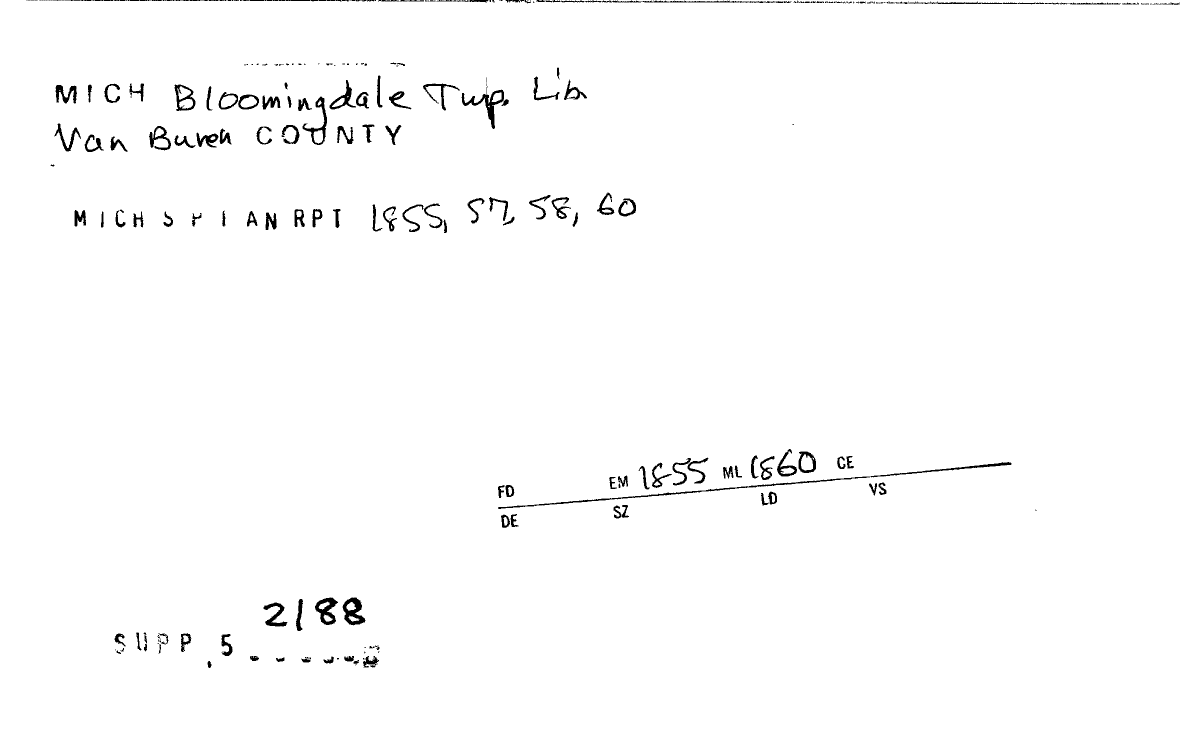 MICH Bloomingdale Twp. Lib
Van Buren COUNTY
MICH RPT 1855, 57, 58, 60
FD EM 1855 ML 1860 CE
DE SZ LD VS
2/88
SUPP. 5